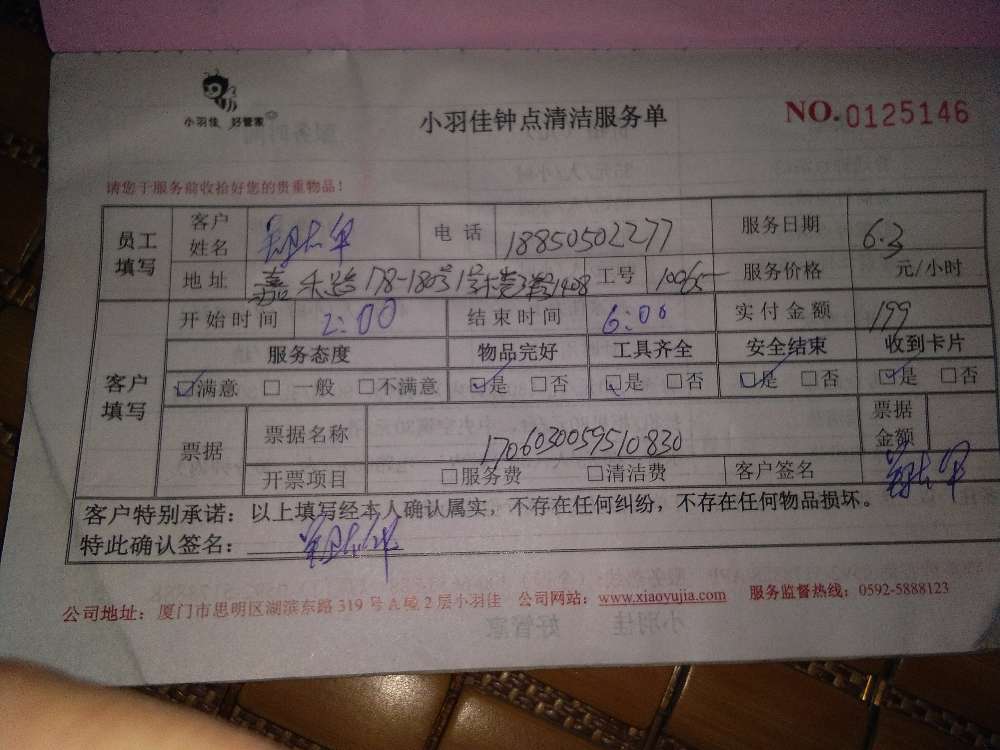 小羽佳 好管家
小羽佳钟点清洁服务单
NO.0125146
请您于服务前收拾好您的贵重物品！
员工填写 客户姓名 电话 18850502277 服务日期 6.3
地址 嘉禾路178-180号 1408 工号 10065 服务价格 元/小时
客户填写 开始时间 2:00 结束时间 6:00 实付金额 199
服务态度 物品完好 工具齐全 安全结束 收到卡片
☑满意 □一般 □不满意 ☑是 □否 ☑是 □否 ☑是 □否 ☑是 □否
票据 票据名称 1706030059510830 票据金额
开票项目 □服务费 □清洁费 客户签名
客户特别承诺：以上填写经本人确认属实，不存在任何纠纷，不存在任何物品损坏。
特此确认签名：
公司地址：厦门市思明区湖滨东路319号A棟2层小羽佳 公司网站：www.xiaoyujia.com 服务监督热线：0592-5888123